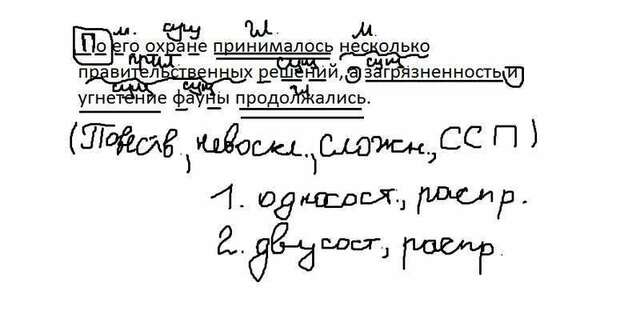 м. сущ гл. м.
По его охране принималось несколько
прил сущ сущ
правительственных решений, а загрязненность и
сущ сущ гл
угнетение фауны продолжались.
(Повеств, невоскл., сложн., ССП)
1. односост., распр.
2. двусост, распр.